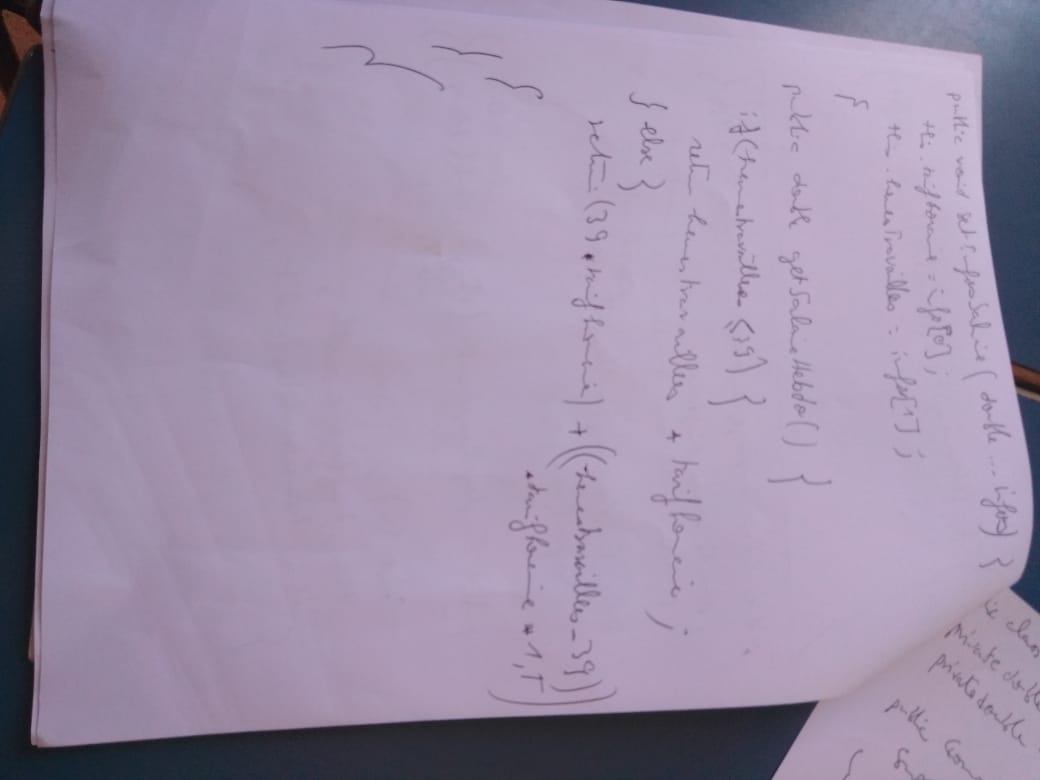 public void setInfosSalaire(double ... infos) {
this.tarifhoraire = info[0];
this.heuresTravailles = info[1];
}
public double getSalaireHebdo() {
if(heurestravailles ≤ 39) {
return heurestravailles * tarifhoraire;
} else {
return (39 * tarifhoraire) + ((heurestravailles - 39))
* tarifhoraire * 1,5)
}
}
class
private double
private double
public